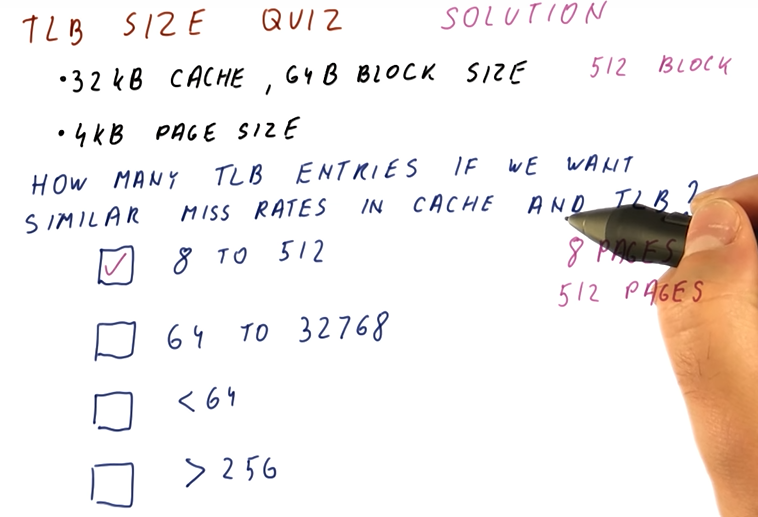 TLB SIZE QUIZ SOLUTION
• 32 kB CACHE, 64 B BLOCK SIZE 512 BLOCK
• 4 kB PAGE SIZE
HOW MANY TLB ENTRIES IF WE WANT
SIMILAR MISS RATES IN CACHE AND TLB?
8 TO 512 8 PAGES
512 PAGES
64 TO 32768
< 64
> 256